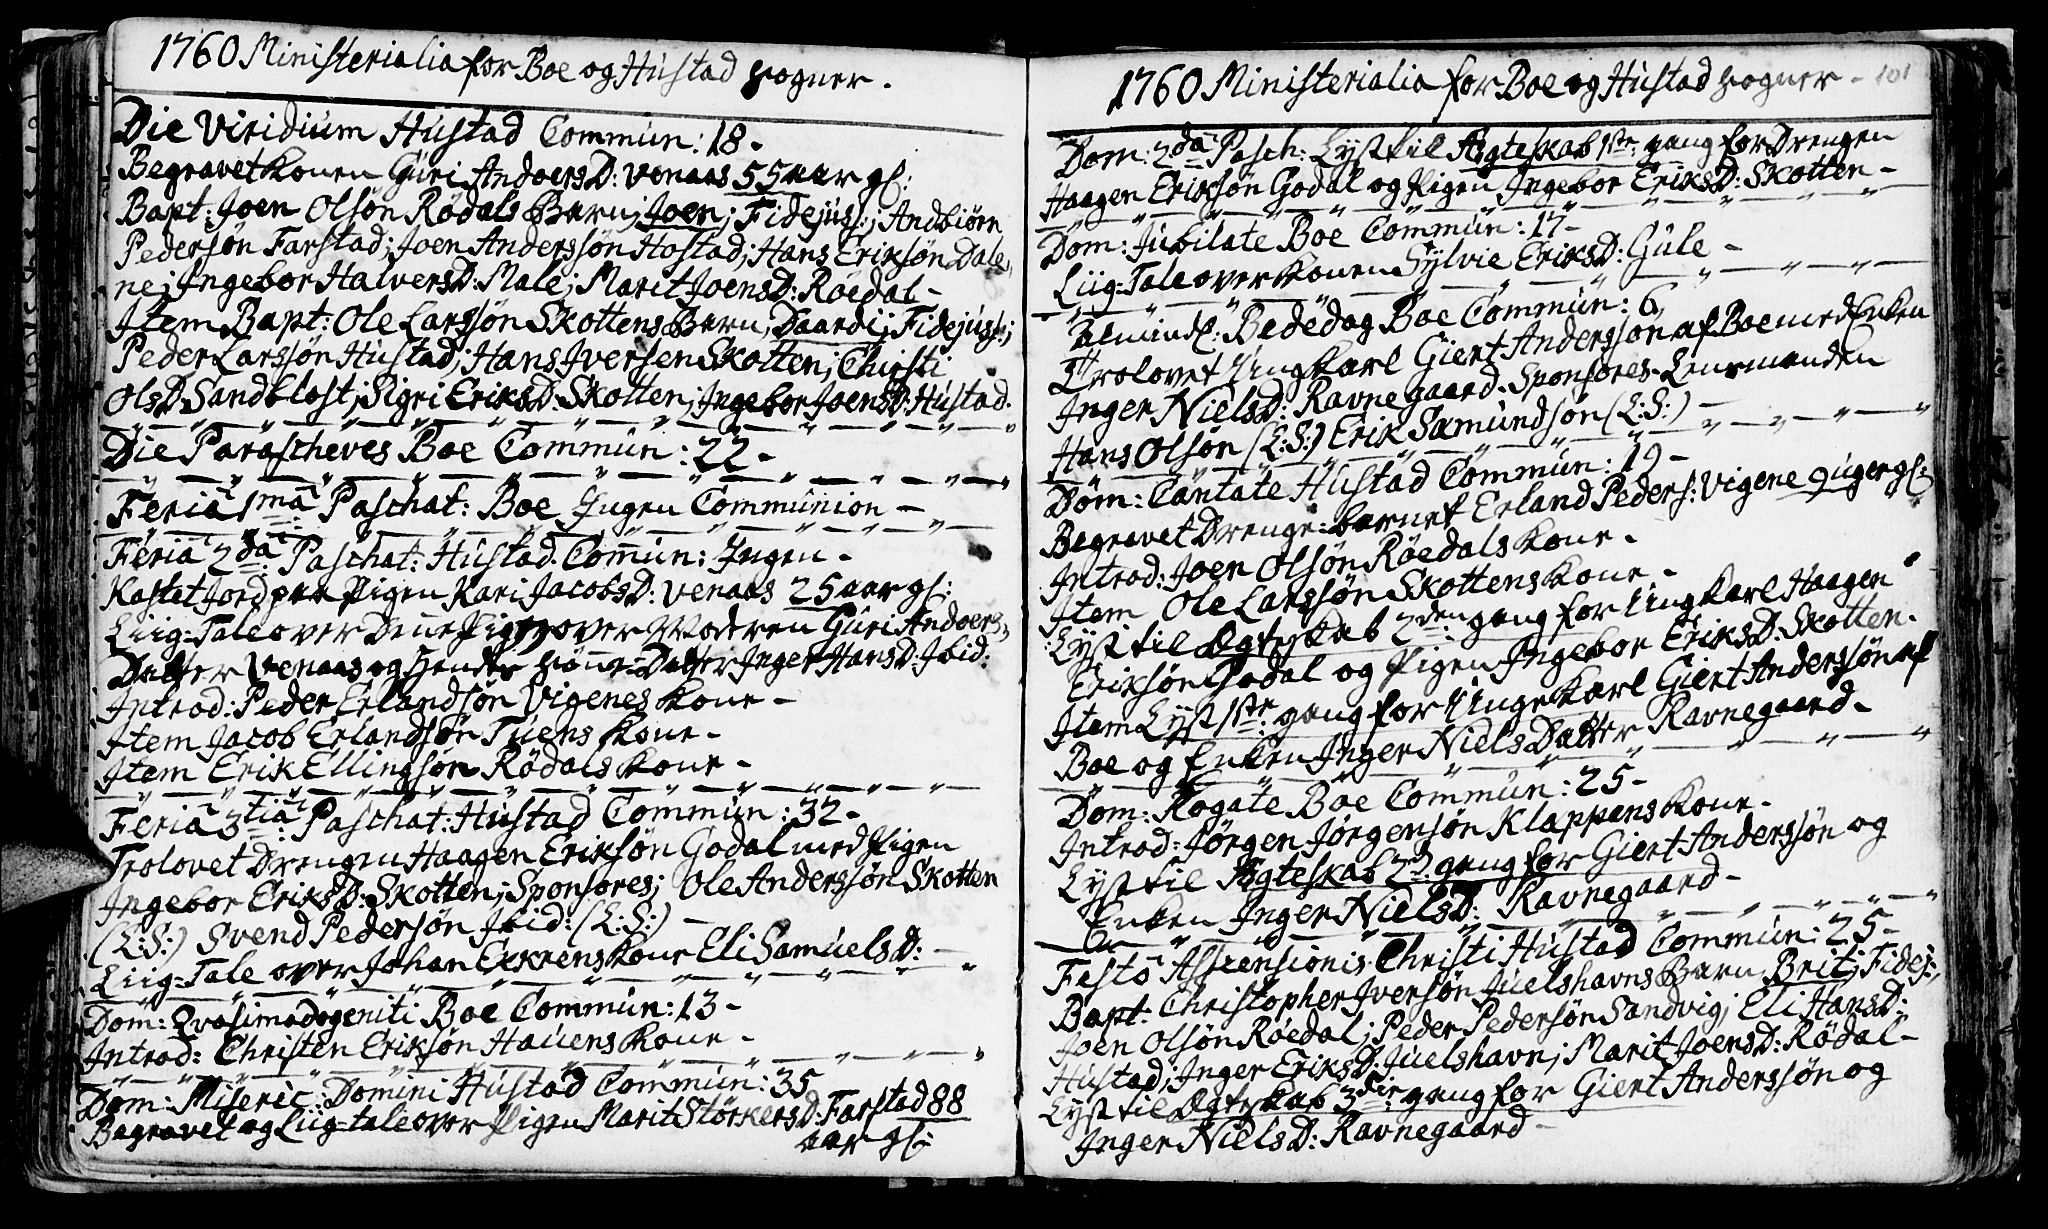 1760 Ministerialia for Boe og Hustad Sogner.
Die Viridium Hustad Commun: 18 -
Begravet Konen Guri AndversD: Venaas 55 aar gl:
Bapt: Joen Olsøn Rødals Barn; Joen; Fidejuss:; Andbiørn
Pedersøn Farstad; Joen Anderssøn Hostad; Hans Eriksøn Dale,,
ne; Ingebor HalversD: Male; Marit JoensD: Røedal -
Item Bapt: Ole Larssøn Skottens Barn, Baardi; Fidejuss:;
Peder Larssøn Hustad; Hans Iversen Skotten; Christi
OlsD: Sandblost; Sigri EriksD: Skotten; Ingebor JoensD: Hustad.
Die Parascheves Boe Commun: 22 -
Feria 1ma: Paschat: Boe Ingen Communion -
Feria 2da: Paschat: Hustad Commun: Ingen -
Kastet Jord paa Pigen Kari JacobsD: Venaas 25 aar gl:
Liig-Tale over Denne Pige, over Moderen Guri Andvers,,
Datter Venaas og Hendes Sønne-Datter Inger HansD: Ibid:
Introd: Peder Erlandsøn Vigenes Kone -
Item Jacob Erlandsøn Tuens Kone -
Item Erik Ellingsøn Rødals Kone -
Feria 3tia: Paschat: Hustad Commun: 32 -
Trolovet Drengen Haagen Eriksøn Godal med Pigen
Ingebor EriksD: Skotten; Sponsores; Ole Anderssøn Skotten
(L:S:) Svend Pedersøn Ibid: (L:S:) -
Liig-Tale over Johan Exrens Kone Eli SamuelsD: -
Dom: Qvasimodogeniti Boe Commun: 13 -
Introd: Christen Eriksøn Hauens Kone -
Dom: Miseric: Domini Hustad Commun: 35
Begravet og Liig-tale over Pigen Marit StørkersD: Farstad 88
aar gl:
1760 Ministerialia for Boe og Hustad Sogner - 101
Dom: 2da Pasch: Lyst til Ægteskab 1ste gang for Drengen
Haagen Eriksøn Godal og Pigen Ingebor EriksD: Skotten -
Dom: Jubilate Boe Commun: 17 -
Liig-Tale over Konen Sylvie EriksD: Gule -
Almindl: Bededag Boe Commun: 6,
Trolovet Ungkarl Giert Anderssøn af Boe med Enken
Inger NielsD: Ravnegaard. Sponsores. Lensmanden
Hans Olsøn (L:S:) Erik Sæmundsøn (L:S:) -
Dom: Cantate Hustad Commun: 19 -
Begravet Drenge-barnet Erland Peders: Vigene 9 uger gl:
Introd: Joen Olsøn Røedals Kone -
Item Ole Larssøn Skottens Kone -
Lyst til Ægteskab 2den gang for Ungkarl Haagen
Eriksøn Godal og Pigen Ingebor EriksD: Skotten.
Item Lyst 1ste gang for Ungekarl Giert Anderssøn af
Boe og Enken Inger Niels Datter Ravnegaard -
Dom: Rogate Boe Commun: 25 -
Introd: Jørgen Jørgensøn Klappens Kone -
Lyst til Ægteskab 2d: gang for Giert Anderssøn og
Enken Inger NielsD: Ravnegaard -
Festo Ascensionis Christi Hustad Commun: 25 -
Bapt: Christopher Iversøn Juelshavns Barn, Brit; Fidej:;
Joen Olsøn Røedal; Peder Pedersøn Sandvig; Eli HansD:
Hustad; Inger EriksD: Juelshavn; Marit JoensD: Rødal -
Lyst til Ægteskab 3die gang for Giert Anderssøn og
Inger NielsD: Ravnegaard -